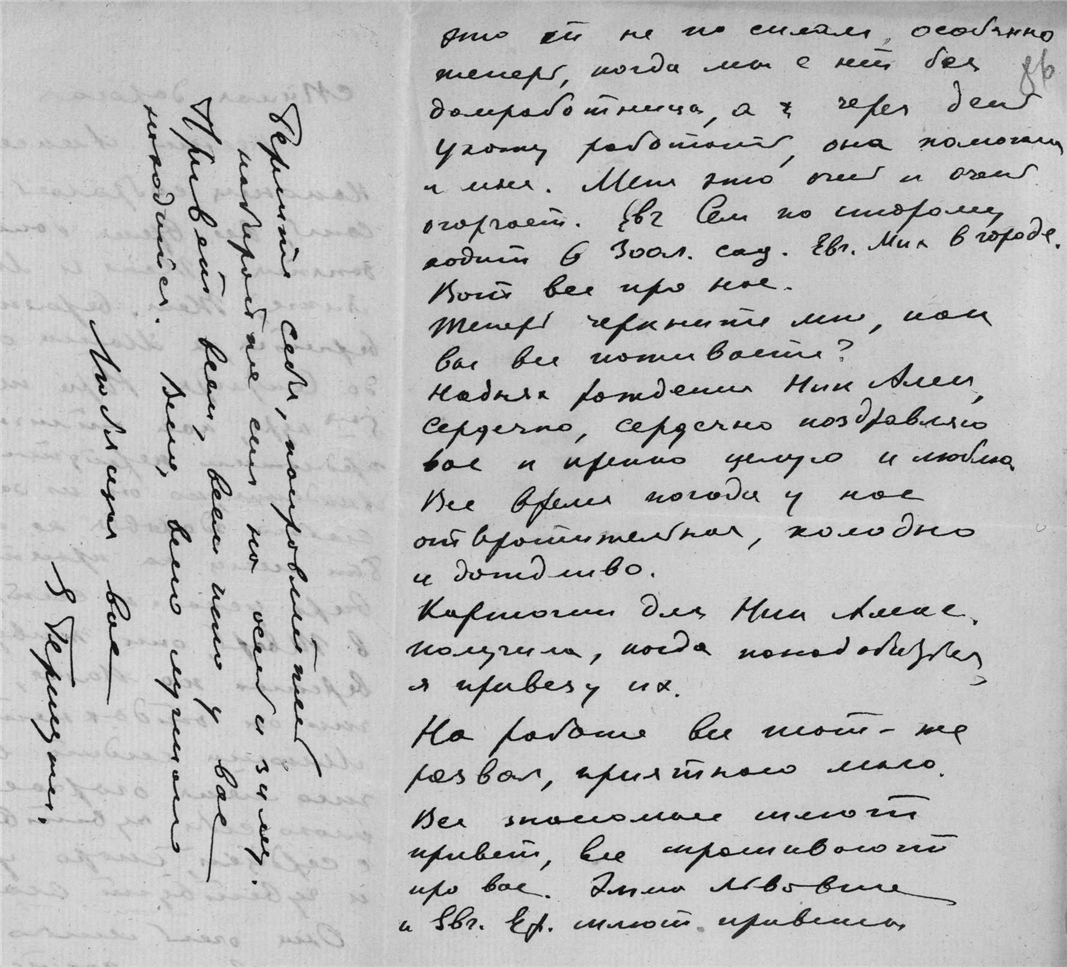 это ей не по силам, особенно
теперь, когда мы с ней без
86
домработницы, а я через день
ухожу работать, она помогала
и мне. Меня это очень и очень
огорчает. Евг Сем по старому
ходит в Зоол. сад. Евг. Мих в городе.
Вот все про нас.
Теперь черкните мне, как
вас все поживаете?
Надня рождения Нин Алек,
сердечно, сердечно поздравляю
вас и крепко целую и люблю
Все время погода у нас
отвратительная, холодно
и дождливо.
Карточки для Нин Алекс.
получила, когда понадобятся
я привезу их.
На работе все тот-же
развал, приятного мало.
Все знакомые шлют
привет, все спрашивают
про вас. Эмма Львовна
и Евг. Еф. шлют приветы
Берегите себя, поправляйтесь
набирайтесь сил на осень и зиму.
Привет всем, всем кто у вас
находится. Всего, всего лучшего
Любящая вас